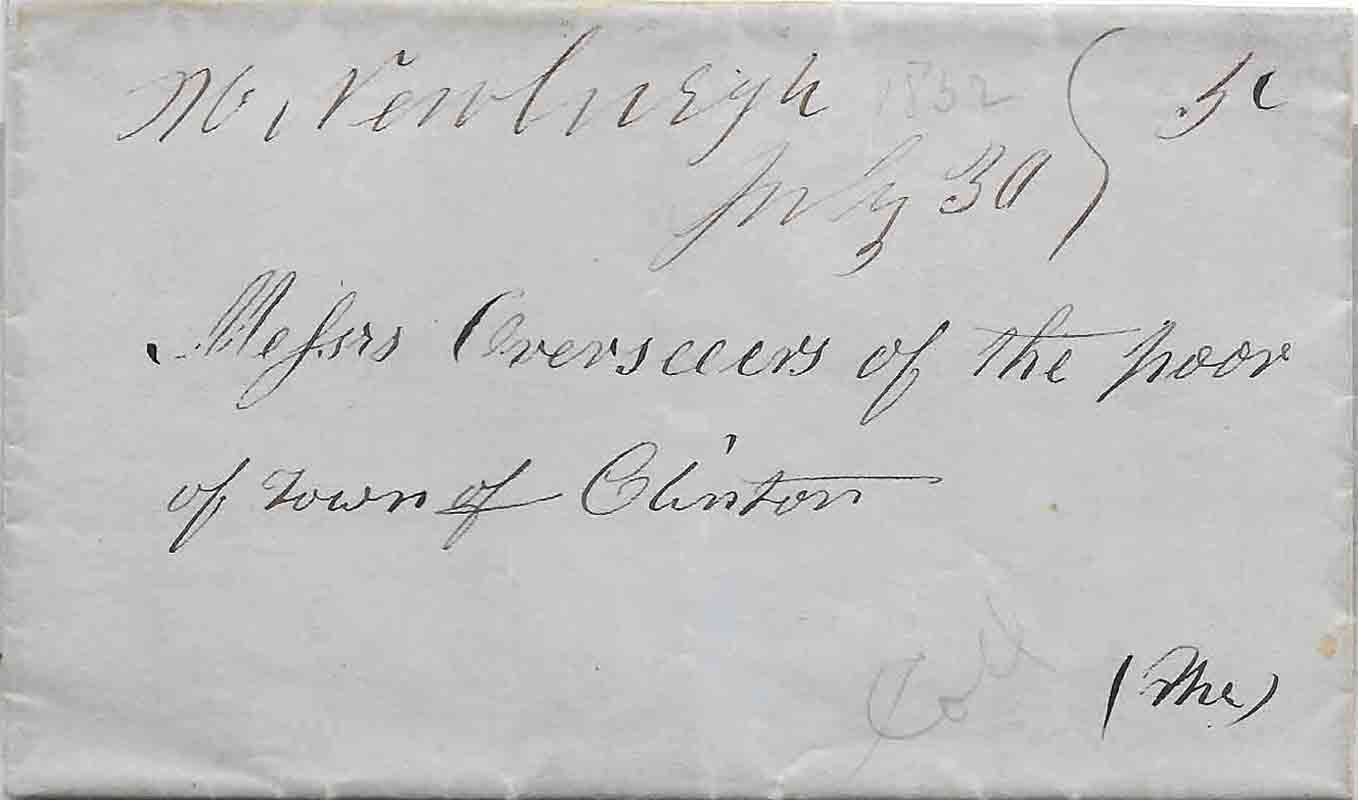 W. Newburgh 1852 } 5c
July 30
Messrs Overseeers of the poor
of Town of Clinton
Coll
(Me)